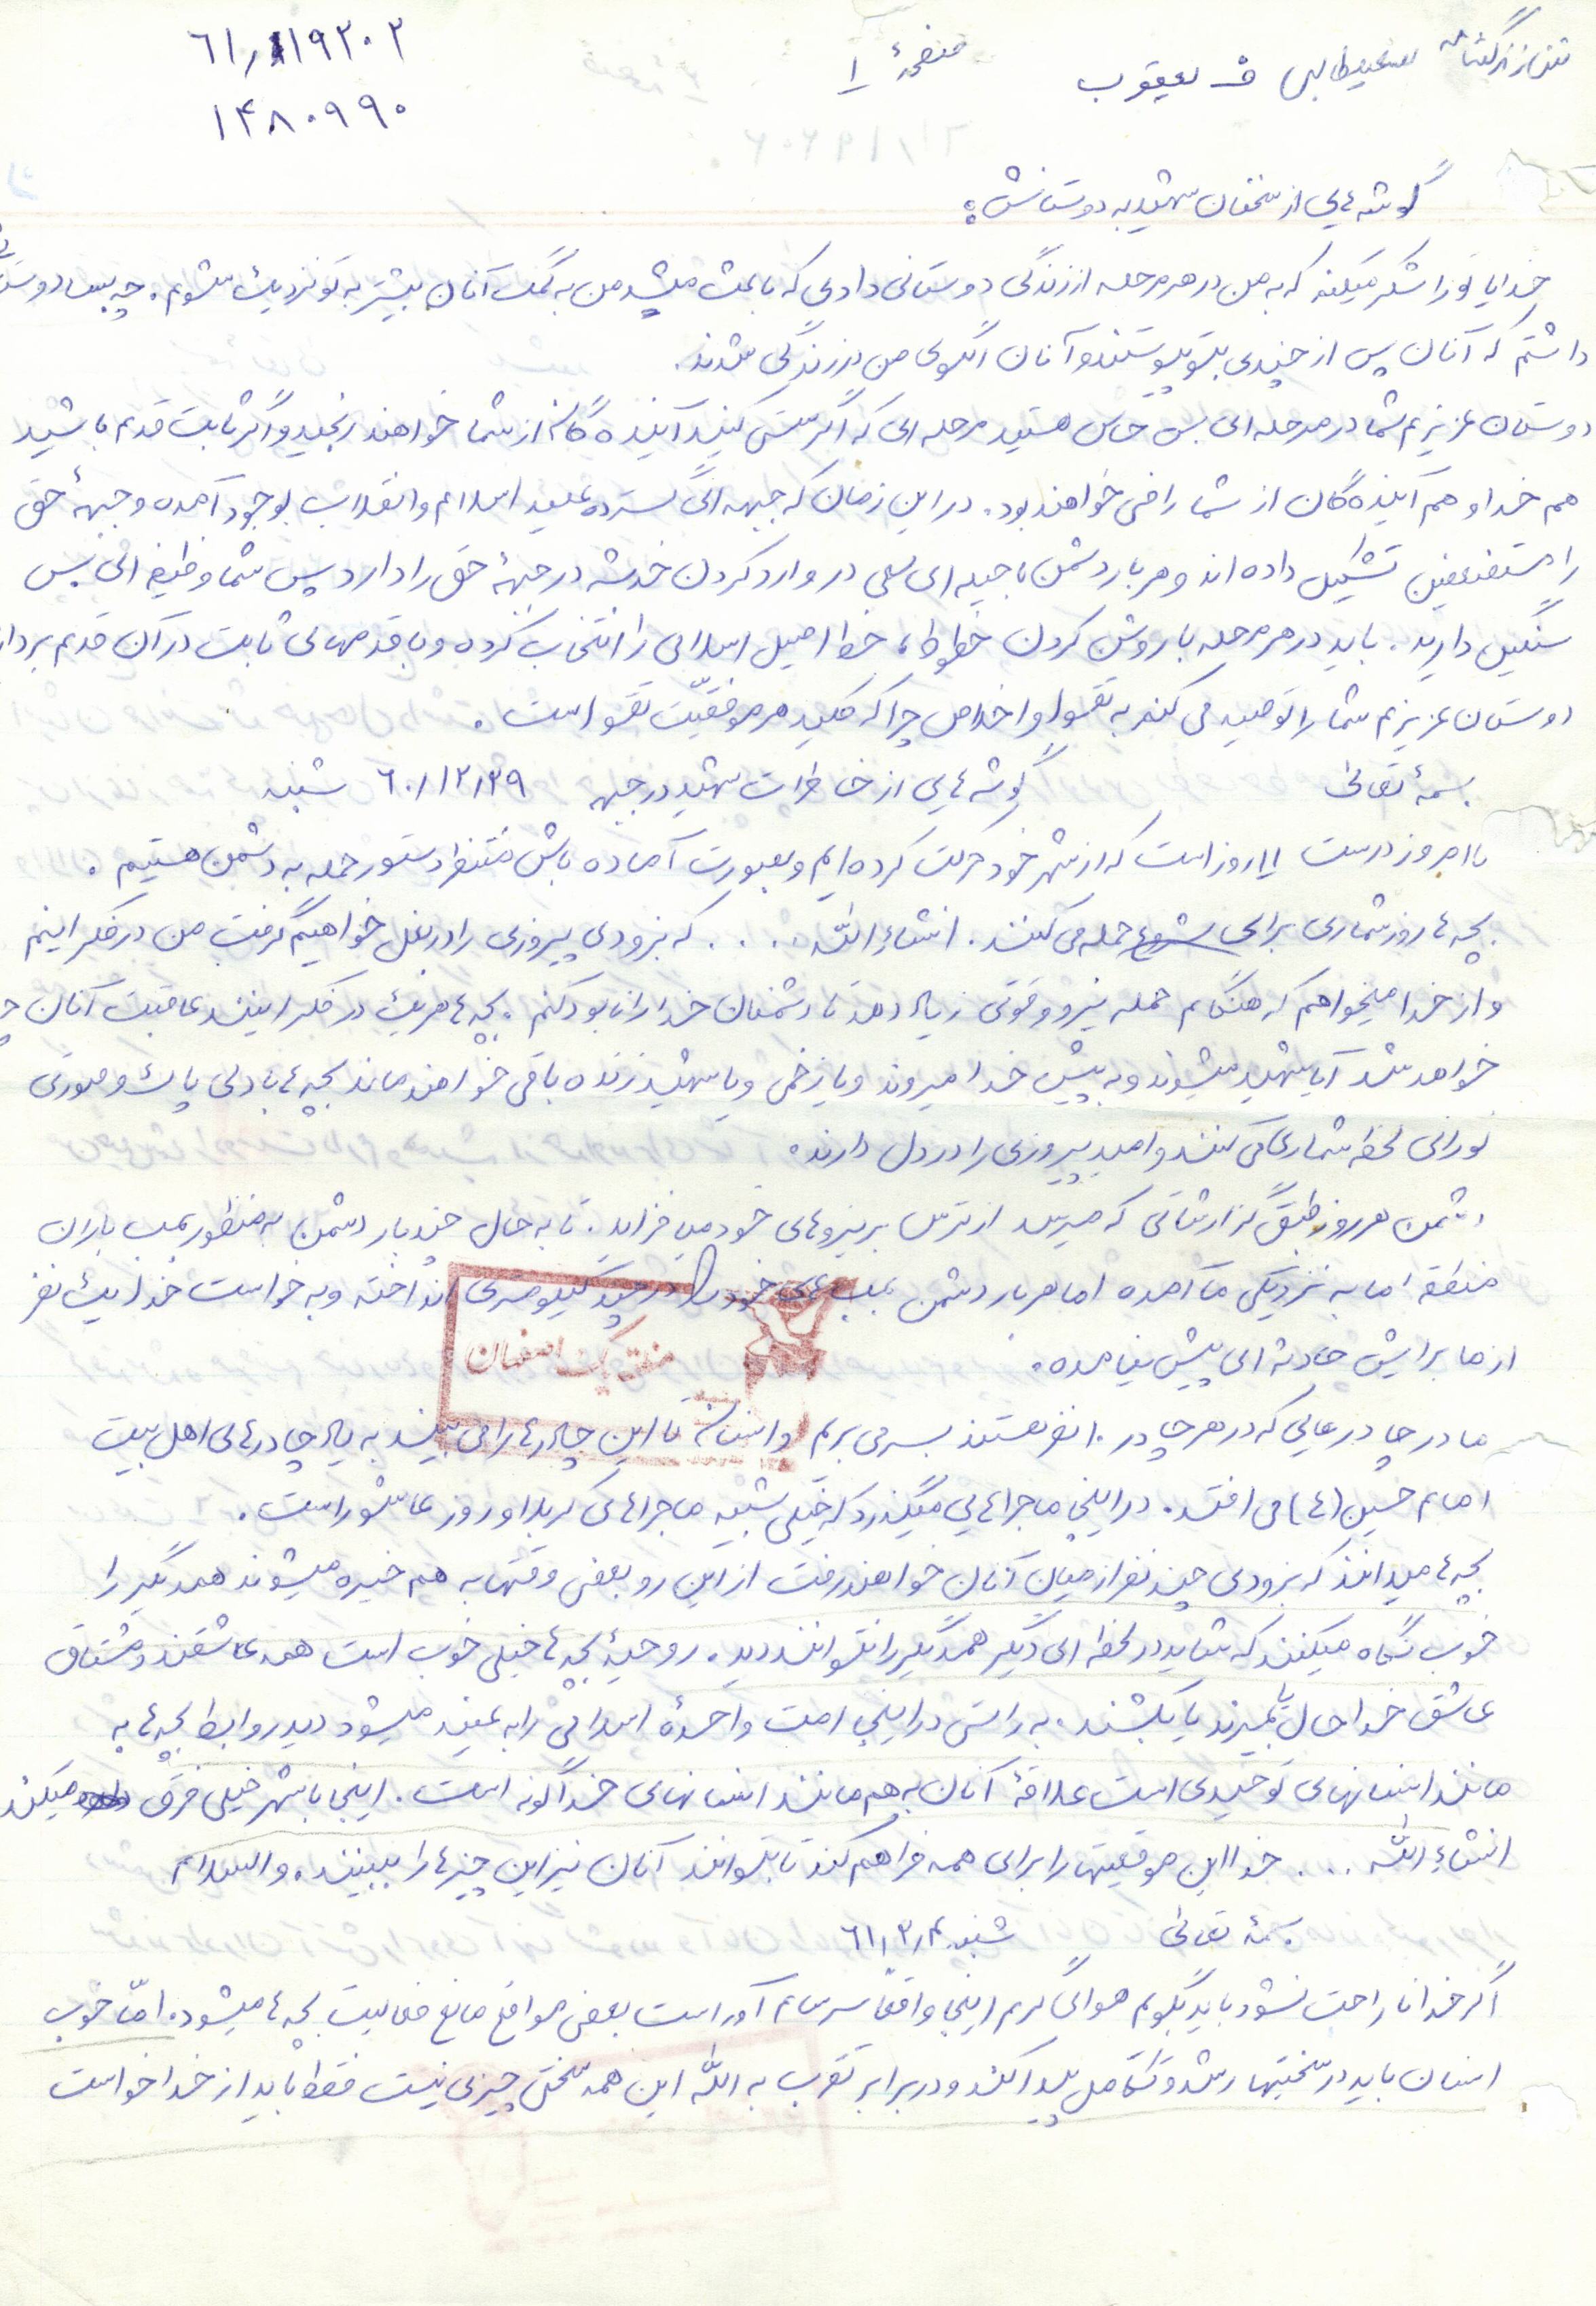 صفحهٔ ۱
ف یعقوب
۶۱/۱۱۹۳۰۳
۱۴۸۰۹۹۰
گوشه هایی از سخنان شهید به دوستانش:
خدایا تو را شکر میکنم که به من در هر مرحله از زندگی دوستانی دادی که باعث میشد من به کمک آنان بیشتر به تو نزدیک میشوم. چه بسا دوستانی
داشتم که آنان پس از چندی بتو پیوستند و آنان الگوی من در زندگی شدند.
دوستان عزیزم شما در مرحله ای بس حساس هستید مرحله ای که اگر سستی کنید آینده گان از شما خواهند رنجید و اگر ثابت قدم باشید
هم خدا و هم آینده گان از شما راضی خواهند بود. در این زمان که جبهه ای گسترده علیه اسلام و انقلاب بوجود آمده و جبههٔ حق
را مستضعفین تشکیل داده اند و هر بار دشمن با حیله ای سعی در وارد کردن خدشه در جبههٔ حق را دارد پس شما وظیفه ای بس
سنگین دارید. باید در هر مرحله با روشن کردن خطوط، خط اصیل اسلامی را انتخاب کرده و با قدمهای ثابت در آن قدم بردارید
دوستان عزیزم شما را توصیه می کنم به تقوا و اخلاص چرا که کلید هر موفقیّت تقوا است.
بسمهٔ تعالی گوشه هایی از خاطرات شهید در جبهه ۶۰/۱۲/۲۹ شنبه
تا امروز درست ۱۱ روز است که از شهر خود حرکت کرده ایم و بصورت آماده باش منتظر دستور حمله به دشمن هستیم.
بچه ها روزشماری برای شروع حمله می کنند. انشاءالله .... که بزودی پیروزی را در بغل خواهیم گرفت من در فکر اینم
و از خدا میخواهم که هنگام حمله نیرو و قوتی زیاد دهد تا دشمنان خدا را نابود کنم. بچه ها هر یک در فکر اینند عاقبت آنان چه
خواهد شد آیا شهید میشوند و به پیش خدا میروند و یا زخمی و یا شهید زنده باقی خواهند ماند بچه ها با دلی پاک و صورتی
نورانی لحظه شماری می کنند و امید پیروزی را در دل دارند.
دشمن هر روز طبق گزارشاتی که میرسد از ترس بر نیروهای خود می افزاید. تا به حال چند بار دشمن به منظور بمب باران
منطقه اما به نزدیکی ما آمده اما هر بار دشمن بمب های خود را در چند کیلومتری انداخته و به خواست خدا یک نفر
از ما برایش حادثه ای پیش نیامده.
منطقه یک اصفهان
ما در چادرهایی که در هر چادر ۱۰ نفر هستند بسر می بریم و انسان تا این چادرها را می بیند به یاد چادرهای اهل بیت
امام حسین (ع) می افتد. در اینجا ماجراهایی میگذرد که خیلی شبیه ماجراهای کربلا و روز عاشورا است.
بچه ها میدانند که بزودی چند نفر از میان آنان خواهند رفت از این رو بعضی وقتها به هم خیره میشوند همدیگر را
خوب نگاه میکنند که شاید در لحظه ای دیگر همدیگر را نتوانند دید. روحیهٔ بچه ها خیلی خوب است همه عاشقند و مشتاق
عاشق خدا حال یا بمیرند یا بکشند. به راستی در اینجا امت واحدهٔ اسلامی را به عینه میشود دید روابط بچه ها به
مانند انسانهای توحیدی است علاقهٔ آنان به هم مانند انسانهای خداگونه است. اینجا با شهر خیلی فرق میکند
انشاءالله .... خدا این موقعیتها را برای همه فراهم کند تا بتوانند آنان نیز این چیزها را ببینند. والسلام
بسمهٔ تعالی شنبه ۶۱/۳/۲
اگر خدا ناراحت نشود باید بگویم هوای گرم اینجا واقعاً سرسام آور است بعضی مواقع مانع فعالیت بچه ها میشود. امّا خوب
انسان باید در سختیها رشد و تکامل پیدا کند و در برابر تقرب به الله این همه سختی چیزی نیست فقط باید از خدا خواست